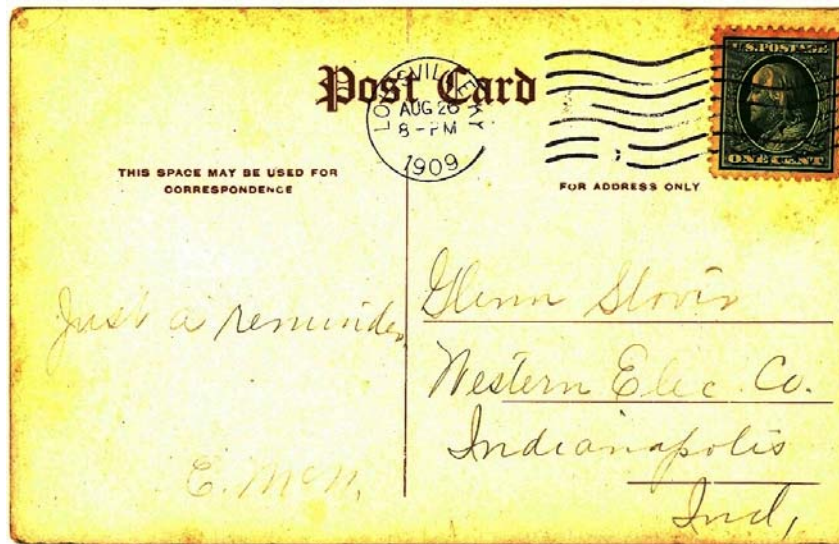 Post Card
LOUISVILLE, KY
AUG 26
8-PM
1909
U.S. POSTAGE
ONE CENT
THIS SPACE MAY BE USED FOR
CORRESPONDENCE
FOR ADDRESS ONLY
Just a reminder
E. McM.
Glenn
Western Elec. Co.
Indianapolis
Ind,